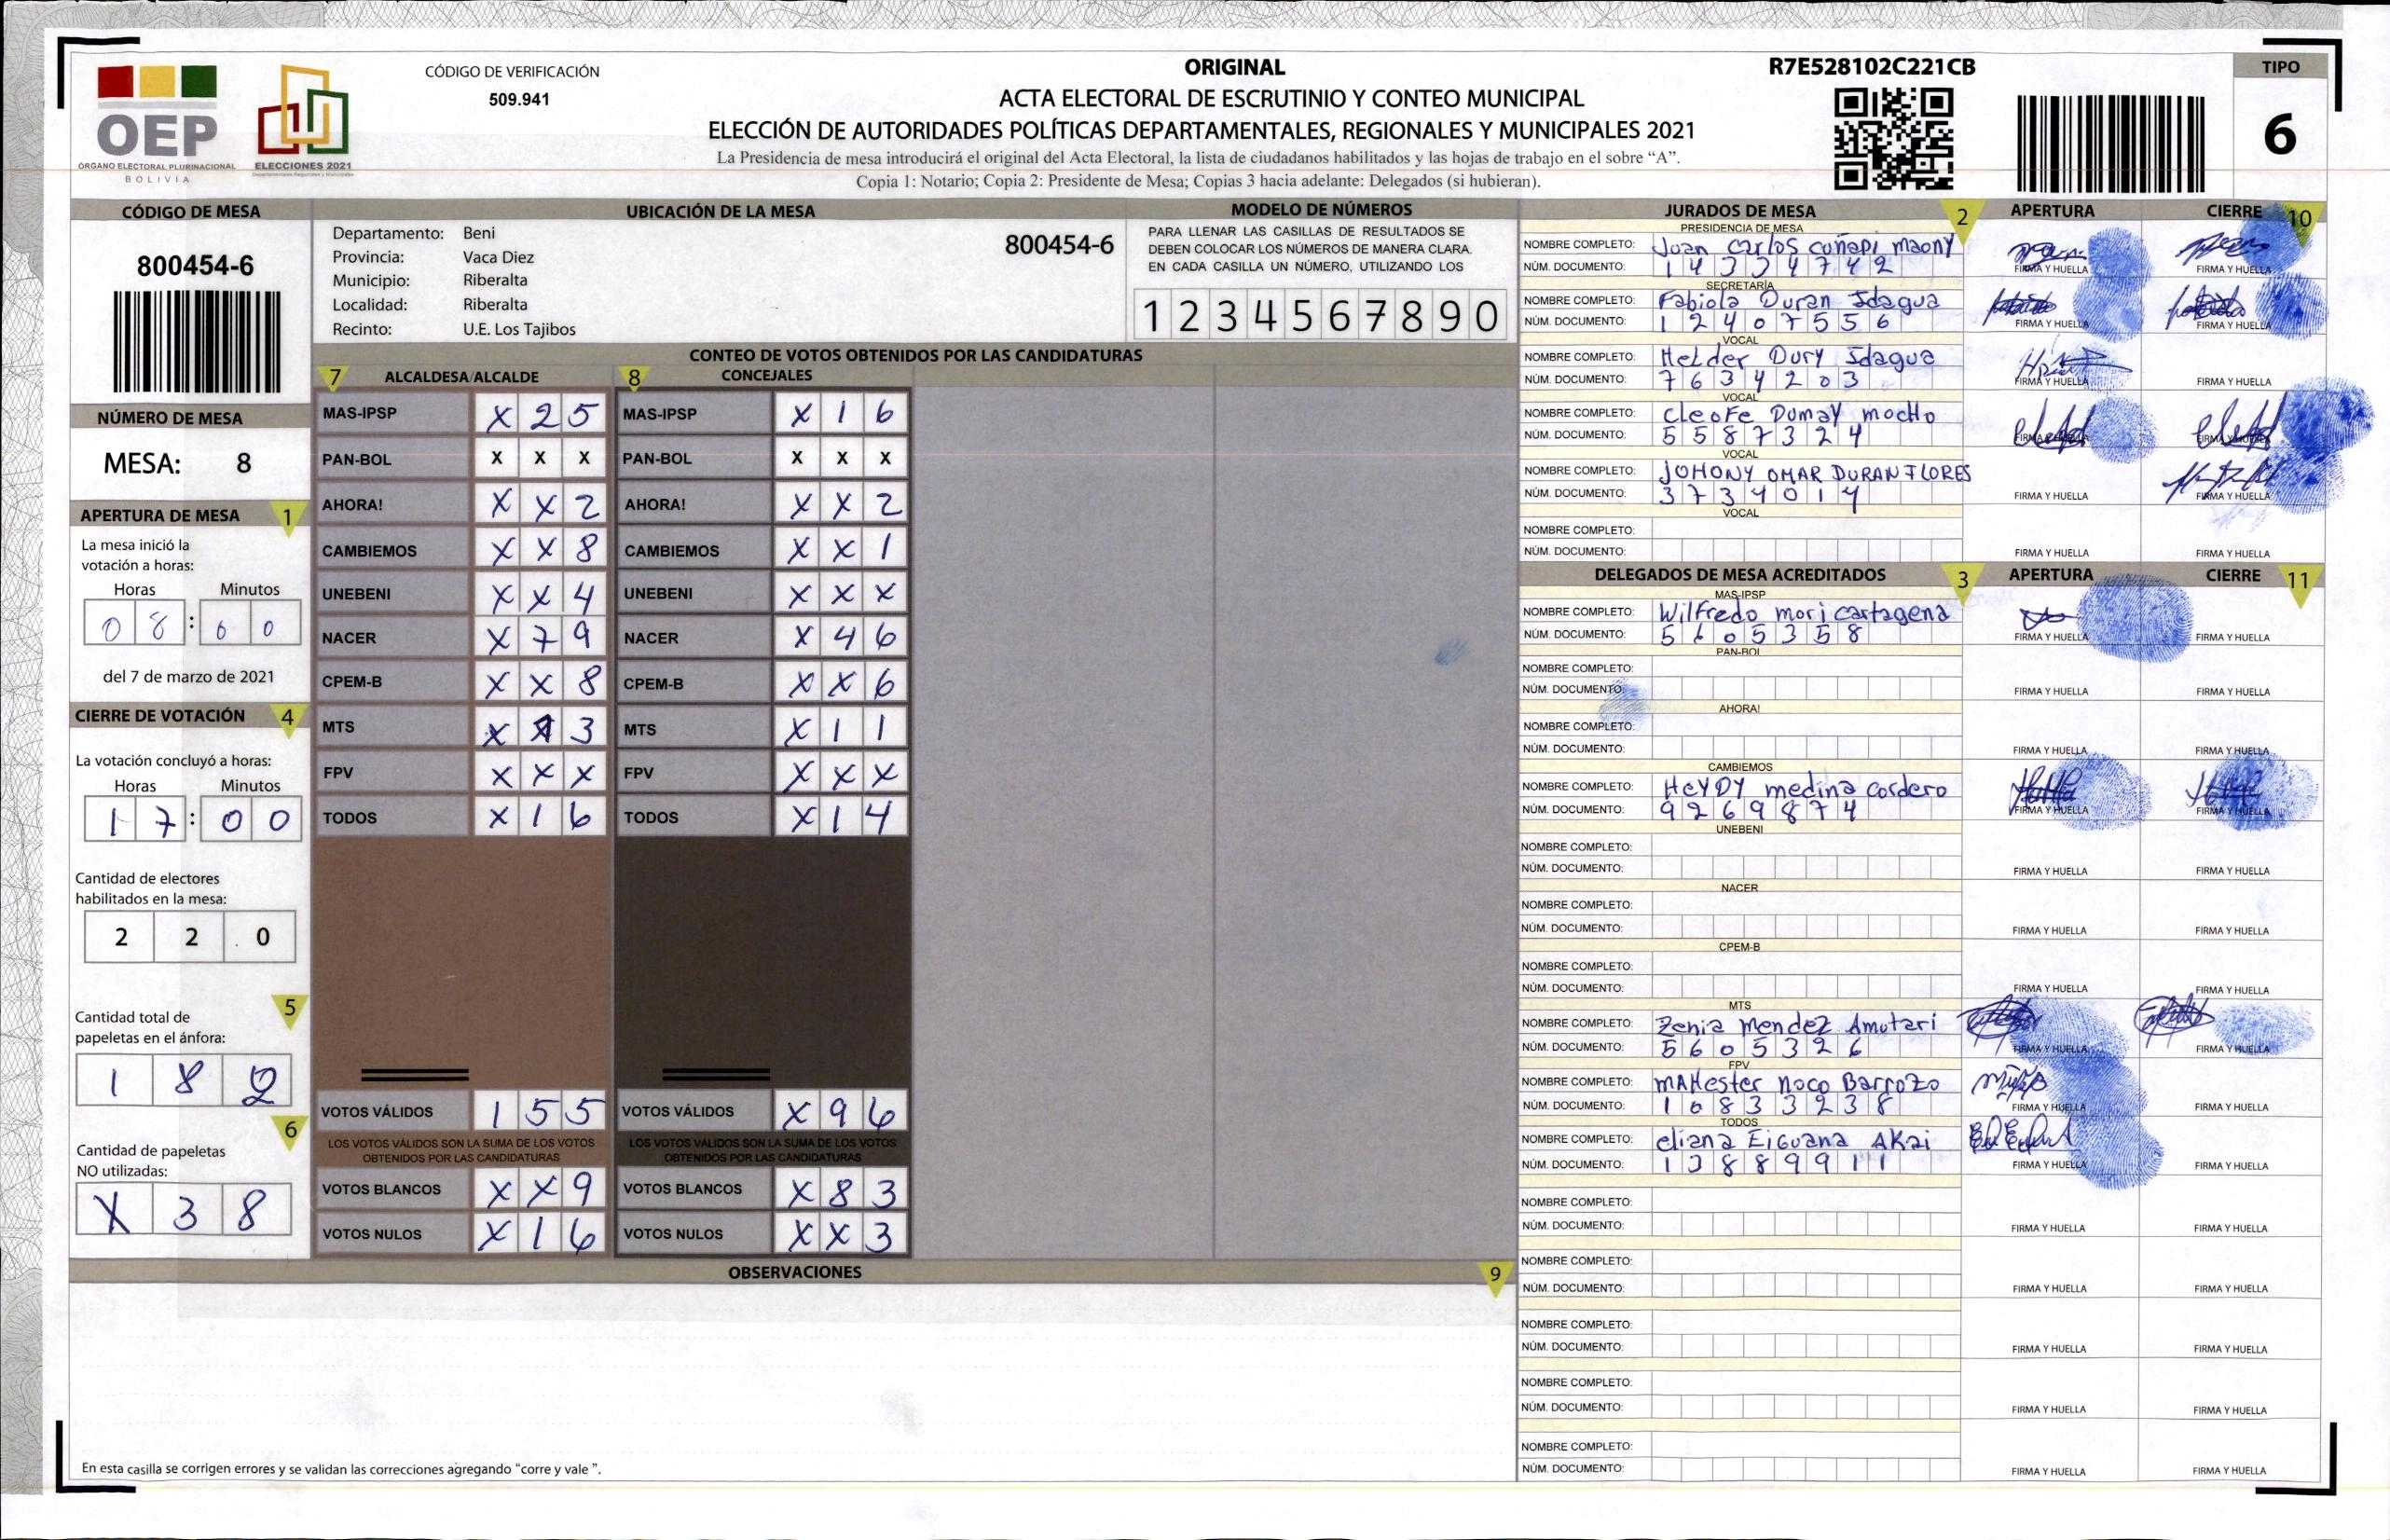 OEP
ÓRGANO ELECTORAL PLURINACIONAL
BOLIVIA
ELECCIONES 2021
CÓDIGO DE VERIFICACIÓN
509.941
ORIGINAL
ACTA ELECTORAL DE ESCRUTINIO Y CONTEO MUNICIPAL
ELECCIÓN DE AUTORIDADES POLÍTICAS DEPARTAMENTALES, REGIONALES Y MUNICIPALES 2021
La Presidencia de mesa introducirá el original del Acta Electoral, la lista de ciudadanos habilitados y las hojas de trabajo en el sobre “A”.
Copia 1: Notario; Copia 2: Presidente de Mesa; Copias 3 hacia adelante: Delegados (si hubieran).
R7E528102C221CB
TIPO
6
CÓDIGO DE MESA
800454-6
NÚMERO DE MESA
MESA: 8
APERTURA DE MESA 1
La mesa inició la
votación a horas:
Horas Minutos
0 8 : 0 0
del 7 de marzo de 2021
CIERRE DE VOTACIÓN 4
La votación concluyó a horas:
Horas Minutos
1 7 : 0 0
Cantidad de electores
habilitados en la mesa:
2 2 0
5
Cantidad total de
papeletas en el ánfora:
1 8 2
6
Cantidad de papeletas
NO utilizadas:
X 3 8
UBICACIÓN DE LA MESA
Departamento: Beni
Provincia: Vaca Diez
Municipio: Riberalta
Localidad: Riberalta
Recinto: U.E. Los Tajibos
800454-6
MODELO DE NÚMEROS
PARA LLENAR LAS CASILLAS DE RESULTADOS SE
DEBEN COLOCAR LOS NÚMEROS DE MANERA CLARA.
EN CADA CASILLA UN NÚMERO, UTILIZANDO LOS
1 2 3 4 5 6 7 8 9 0
CONTEO DE VOTOS OBTENIDOS POR LAS CANDIDATURAS
7 ALCALDESA/ALCALDE 8 CONCEJALES
MAS-IPSP X 2 5 MAS-IPSP X 1 6
PAN-BOL X X X PAN-BOL X X X
AHORA! X X 2 AHORA! X X 2
CAMBIEMOS X X 8 CAMBIEMOS X X 1
UNEBENI X X 4 UNEBENI X X X
NACER X 7 9 NACER X 4 6
CPEM-B X X 8 CPEM-B X X 6
MTS X 1 3 MTS X 1 1
FPV X X X FPV X X X
TODOS X 1 6 TODOS X 1 4
VOTOS VÁLIDOS 1 5 5 VOTOS VÁLIDOS X 9 6
LOS VOTOS VÁLIDOS SON LA SUMA DE LOS VOTOS OBTENIDOS POR LAS CANDIDATURAS LOS VOTOS VÁLIDOS SON LA SUMA DE LOS VOTOS OBTENIDOS POR LAS CANDIDATURAS
VOTOS BLANCOS X X 9 VOTOS BLANCOS X 8 3
VOTOS NULOS X 1 6 VOTOS NULOS X X 3
OBSERVACIONES 9
En esta casilla se corrigen errores y se validan las correcciones agregando “corre y vale ”.
JURADOS DE MESA 2 APERTURA CIERRE 10
PRESIDENCIA DE MESA
NOMBRE COMPLETO: Juan Carlos cuñapi maony
NÚM. DOCUMENTO: 1 4 3 3 4 7 4 2 FIRMA Y HUELLA FIRMA Y HUELLA
SECRETARÍA
NOMBRE COMPLETO: Fabiola Duran Idagua
NÚM. DOCUMENTO: 1 2 4 0 7 5 5 6 FIRMA Y HUELLA FIRMA Y HUELLA
VOCAL
NOMBRE COMPLETO: Helder Dury Idagua
NÚM. DOCUMENTO: 7 6 3 4 2 0 3 FIRMA Y HUELLA FIRMA Y HUELLA
VOCAL
NOMBRE COMPLETO: Cleofe Dumay mocho
NÚM. DOCUMENTO: 5 5 8 7 3 2 4 FIRMA Y HUELLA FIRMA Y HUELLA
VOCAL
NOMBRE COMPLETO: JOHONY OMAR DURAN FLORES
NÚM. DOCUMENTO: 3 7 3 4 0 1 4 FIRMA Y HUELLA FIRMA Y HUELLA
VOCAL
NOMBRE COMPLETO:
NÚM. DOCUMENTO: FIRMA Y HUELLA FIRMA Y HUELLA
DELEGADOS DE MESA ACREDITADOS 3 APERTURA CIERRE 11
MAS-IPSP
NOMBRE COMPLETO: Wilfredo mori cartagena
NÚM. DOCUMENTO: 5 6 0 5 3 5 8 FIRMA Y HUELLA FIRMA Y HUELLA
PAN-BOL
NOMBRE COMPLETO:
NÚM. DOCUMENTO: FIRMA Y HUELLA FIRMA Y HUELLA
AHORA!
NOMBRE COMPLETO:
NÚM. DOCUMENTO: FIRMA Y HUELLA FIRMA Y HUELLA
CAMBIEMOS
NOMBRE COMPLETO: HeYDY medina cordero
NÚM. DOCUMENTO: 9 2 6 9 8 7 4 FIRMA Y HUELLA FIRMA Y HUELLA
UNEBENI
NOMBRE COMPLETO:
NÚM. DOCUMENTO: FIRMA Y HUELLA FIRMA Y HUELLA
NACER
NOMBRE COMPLETO:
NÚM. DOCUMENTO: FIRMA Y HUELLA FIRMA Y HUELLA
CPEM-B
NOMBRE COMPLETO:
NÚM. DOCUMENTO: FIRMA Y HUELLA FIRMA Y HUELLA
MTS
NOMBRE COMPLETO: Zenia mendez Amutari
NÚM. DOCUMENTO: 5 6 0 5 3 2 6 FIRMA Y HUELLA FIRMA Y HUELLA
FPV
NOMBRE COMPLETO: mAHester noco Barrozo
NÚM. DOCUMENTO: 1 0 8 3 3 2 3 8 FIRMA Y HUELLA FIRMA Y HUELLA
TODOS
NOMBRE COMPLETO: eliana Eiguana AKai
NÚM. DOCUMENTO: 1 3 8 8 9 9 1 1 FIRMA Y HUELLA FIRMA Y HUELLA
NOMBRE COMPLETO:
NÚM. DOCUMENTO: FIRMA Y HUELLA FIRMA Y HUELLA
NOMBRE COMPLETO:
NÚM. DOCUMENTO: FIRMA Y HUELLA FIRMA Y HUELLA
NOMBRE COMPLETO:
NÚM. DOCUMENTO: FIRMA Y HUELLA FIRMA Y HUELLA
NOMBRE COMPLETO:
NÚM. DOCUMENTO: FIRMA Y HUELLA FIRMA Y HUELLA
NOMBRE COMPLETO:
NÚM. DOCUMENTO: FIRMA Y HUELLA FIRMA Y HUELLA